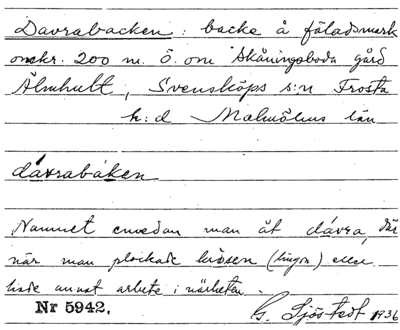 Davrabacken : backe å fäladsmark
omkr. 200 m. ö. om Skåningsboda gård
Älmhult, Svensköps s:n Frosta
h:d Malmöhus län
dávrabáken
Namnet emedan man åt dávra, där
när man plockade krösen (lingon) eller
hade annat arbete i närheten.
Nr 5942. G. Sjöstedt 1936